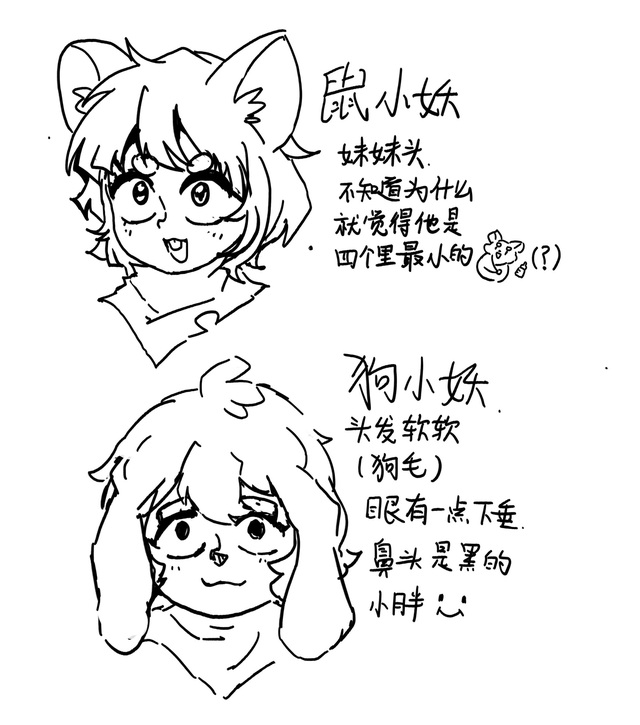 鼠小妖
妹妹头.
不知道为什么
就觉得他是
四个里最小的(?)
狗小妖.
头发软软
(狗毛)
眼有一点下垂.
鼻头是黑的
小胖